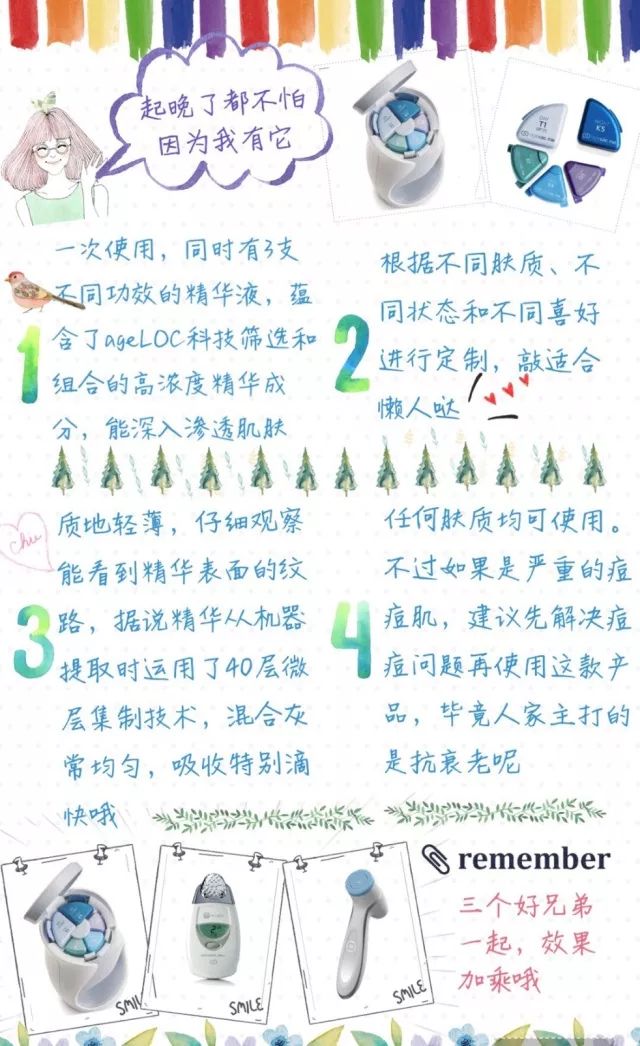 起晚了都不怕
因为我有它
DAY
T1
NIGHT
K5
一次使用，同时有3支
不同功效的精华液，蕴
含了ageLOC科技筛选和
组合的高浓度精华成
分，能深入渗透肌肤
1
根据不同肤质、不
同状态和不同喜好
进行定制，敲适合
懒人哒
2
chu
质地轻薄，仔细观察
能看到精华表面的纹
路，据说精华从机器
提取时运用了40层微
层集制技术，混合灰
常均匀，吸收特别滴
快哦
3
任何肤质均可使用。
不过如果是严重的痘
痘肌，建议先解决痘
痘问题再使用这款产
品，毕竟人家主打的
是抗衰老呢
4
SMILE
SMILE
SMILE
remember
三个好兄弟
一起，效果
加乘哦